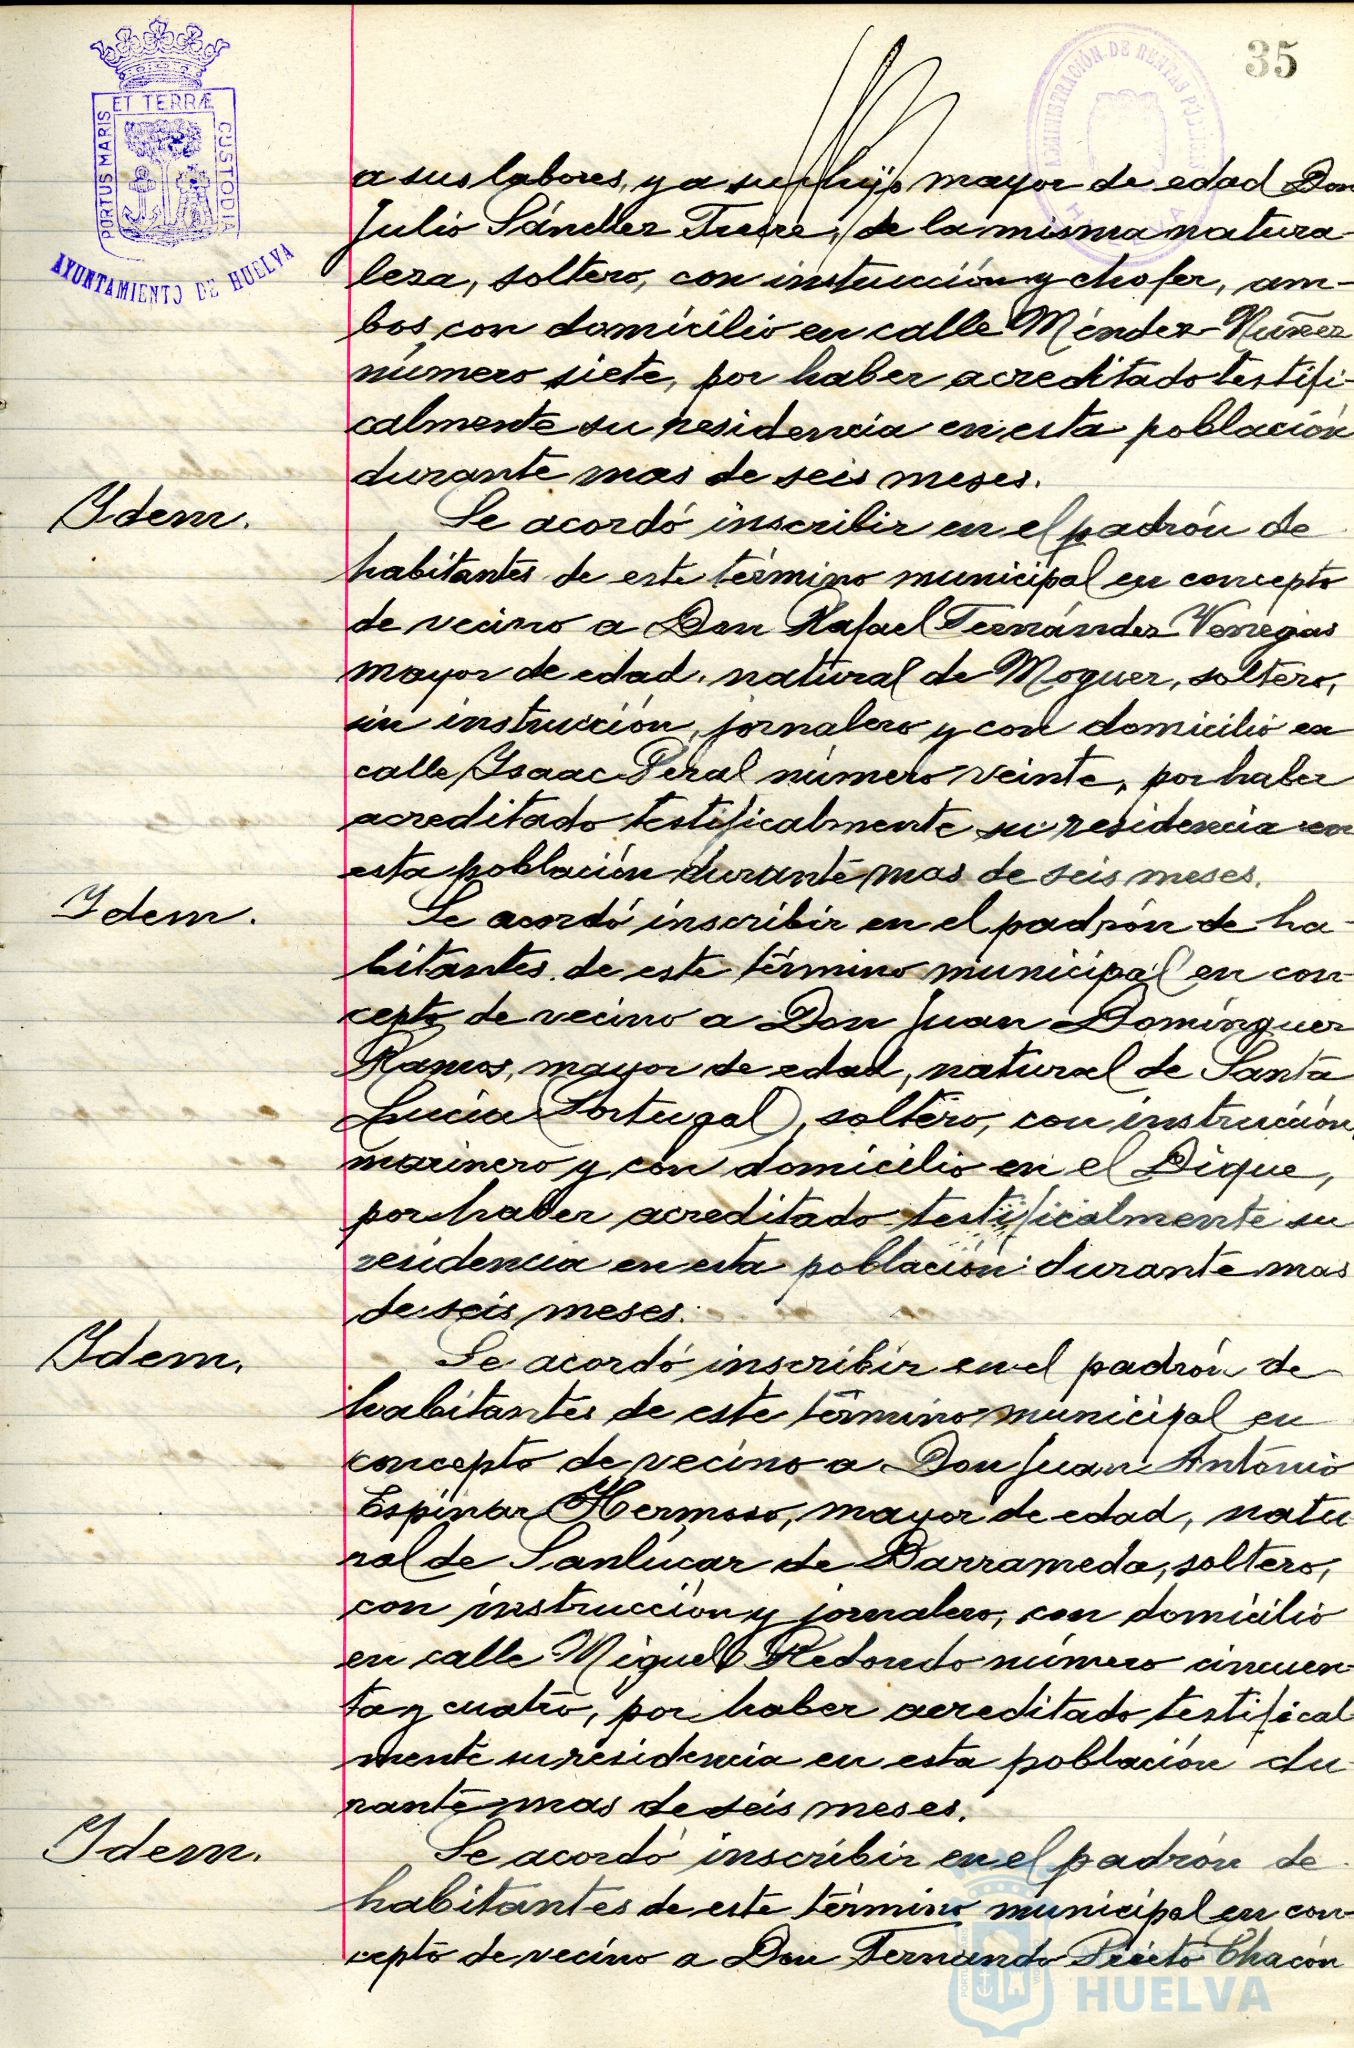 35
ET TERRÆ
PORTUS MARIS
CUSTODIA
AYUNTAMIENTO DE HUELVA
ADMINISTRACIÓN DE RENTAS PÚBLICAS
HUELVA
a sus labores, y a su hijo mayor de edad Don
Julio Sánchez Freire, de la misma natura-
leza, soltero, con instrucción y chofer, am-
bos con domicilio en calle Méndez Nuñez
número siete, por haber acreditado testifi-
calmente su residencia en esta población
durante mas de seis meses.
Idem.
Se acordó inscribir en el padrón de
habitantes de este término municipal en concepto
de vecino a Don Rafael Fernández Venegas
mayor de edad, natural de Moguer, soltero,
sin instrucción, jornalero y con domicilio en
calle Isaac Peral número veinte, por haber
acreditado testificalmente su residencia en
esta población durante mas de seis meses.
Idem.
Se acordó inscribir en el padrón de ha-
bitantes de este término municipal en con-
cepto de vecino a Don Juan Domínguez
Ramos, mayor de edad, natural de Santa
Lucia (Portugal), soltero, con instrucción,
marinero y con domicilio en el Dique,
por haber acreditado testificalmente su
residencia en esta población durante mas
de seis meses.
Idem.
Se acordó inscribir en el padrón de
habitantes de este término municipal en
concepto de vecino a Don Juan Antonio
Espinar Hermoso, mayor de edad, natu
ral de Sanlúcar de Barrameda, soltero,
con instrucción y jornalero, con domicilio
en calle Miguel Redondo número cincuen-
ta y cuatro, por haber acreditado testifical
mente su residencia en esta población du-
rante mas de seis meses.
Idem.
Se acordó inscribir en el padrón de
habitantes de este término municipal en con-
cepto de vecino a Don Fernando Prieto Chacón
HUELVA